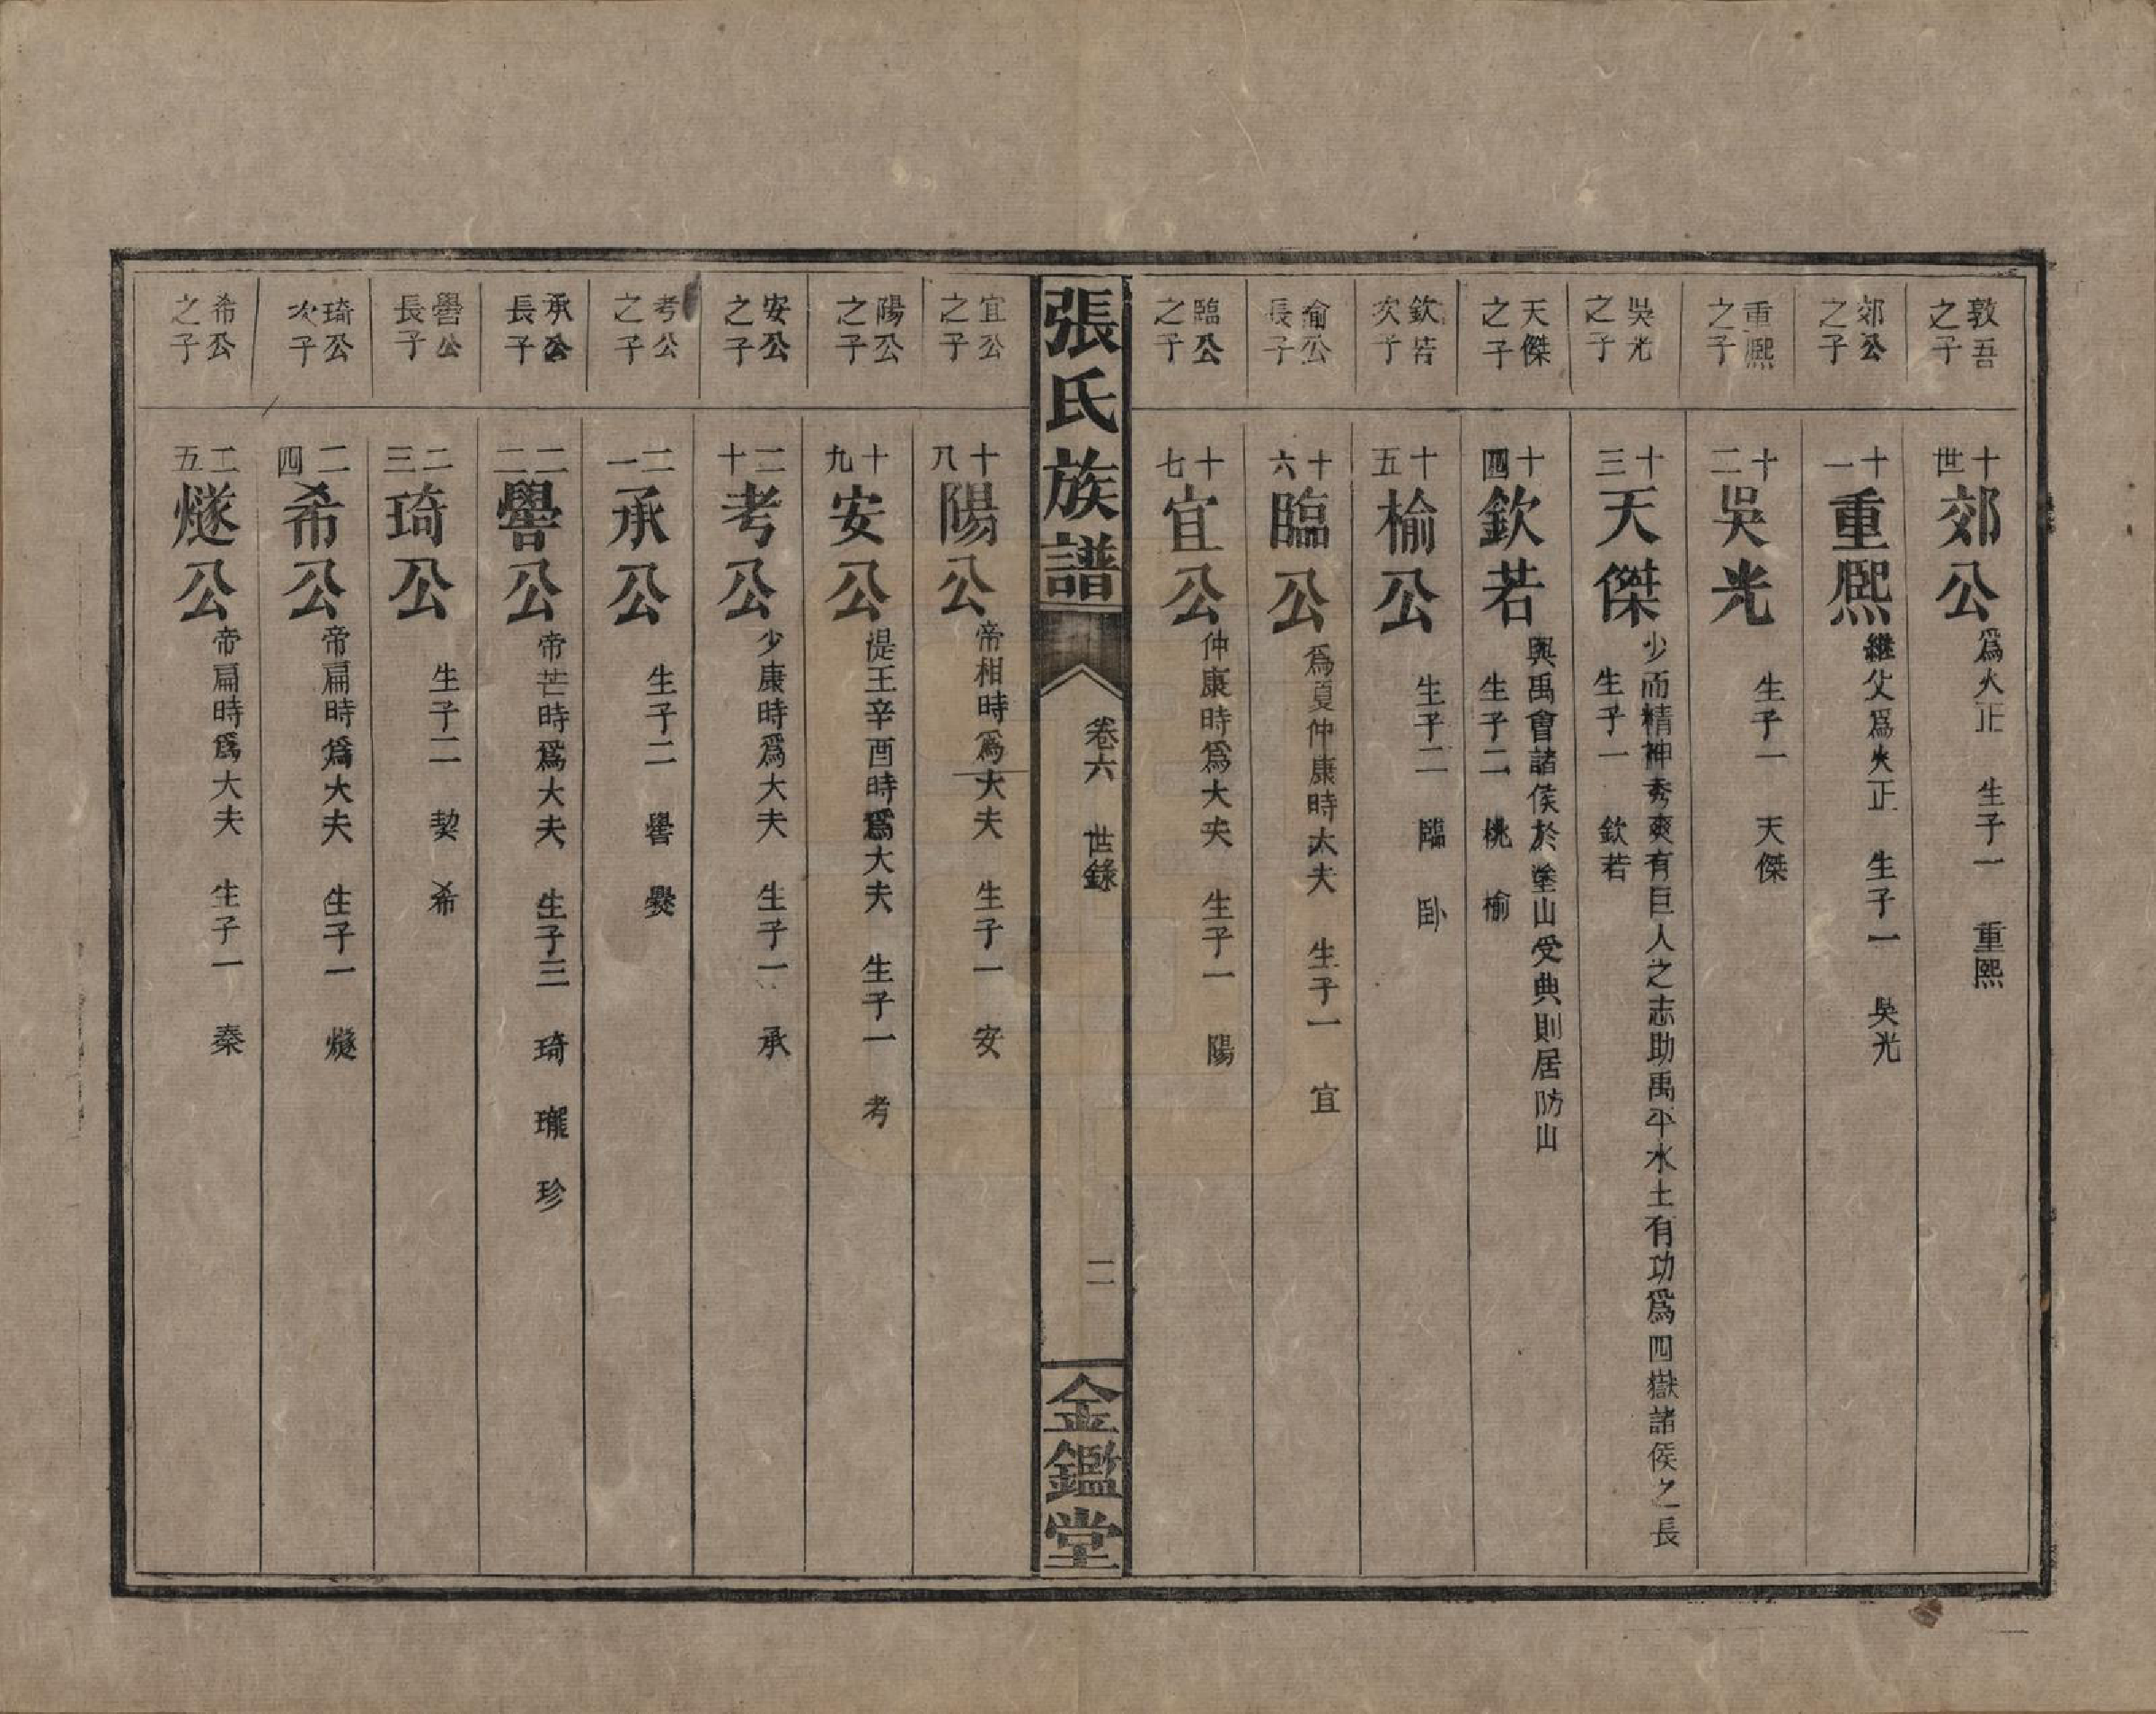 敦吾之子
十世 郊公 爲火正 生子一 重熙
郊公之子
十一 重熙 繼父爲火正 生子一 吳光
重熙之子
十二 吳光 生子一 天傑
吳光之子
十三 天傑 少而精神秀爽有巨人之志助禹平水土有功爲四嶽諸侯之長
生子一 欽若
天傑之子
十四 欽若 興禹會諸侯於塗山受典則居防山
生子二 桃 榆
欽若次子
十五 榆公 生子二 臨 卧
榆公長子
十六 臨公 爲夏仲康時大夫 生子一 宜
臨公之子
十七 宜公 仲康時爲大夫 生子一 陽
張氏族譜 卷六 世錄 二 金鑑堂
宜公之子
十八 陽公 帝相時爲大夫 生子一 安
陽公之子
十九 安公 湜王辛酉時爲大夫 生子一 考
安公之子
二十 考公 少康時爲大夫 生子一 承
考公之子
二一 承公 生子二 礐 爂
承公長子
二二 礐公 帝芒時爲大夫 生子三 琦 瓏 珍
礐公長子
二三 琦公 生子二 契 希
琦公次子
二四 希公 帝扁時爲大夫 生子一 燧
希公之子
二五 燧公 帝扁時爲大夫 生子一 秦